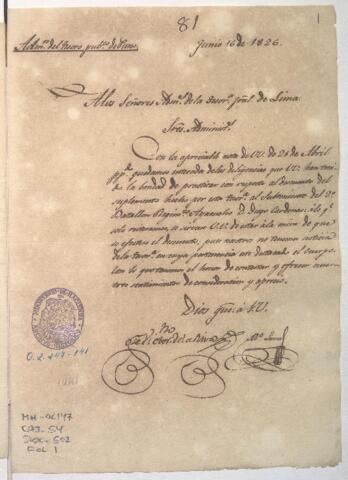 81
1
Adm.n del tesoro pub.co de Puno.
Junio 16 de 1826.
A los Señores Adm.s de la tesor.a pral de Lima.
Sres. Administ.s
Con la apreciable nota de VV. de 21 de Abril
pp.o quedamos de las diligencias que VV. han teni-
do la bondad de practicar con respecto al Documento del
suplemento hecho por esta tesor.a al Subteniente del 2.o
Batallon Ayacucho D. Diego Cardenas: á lo q.e
solo se sirvan VV. de estar á la mira de que
se efectue el descuento, pues nosotros no tenemos noticia
de la tesor.a en cuya pertenencia está el cuerpo
con lo que tenemos el honor de contestar y ofrecer nues-
tros sentimientos de consideracion y aprecio.
Dios gue. á VV.
MINISTERIO DE HACIENDA
O.L. 147-141
MH-OL147
CAJ. 54
DOC. 502
FOL 1